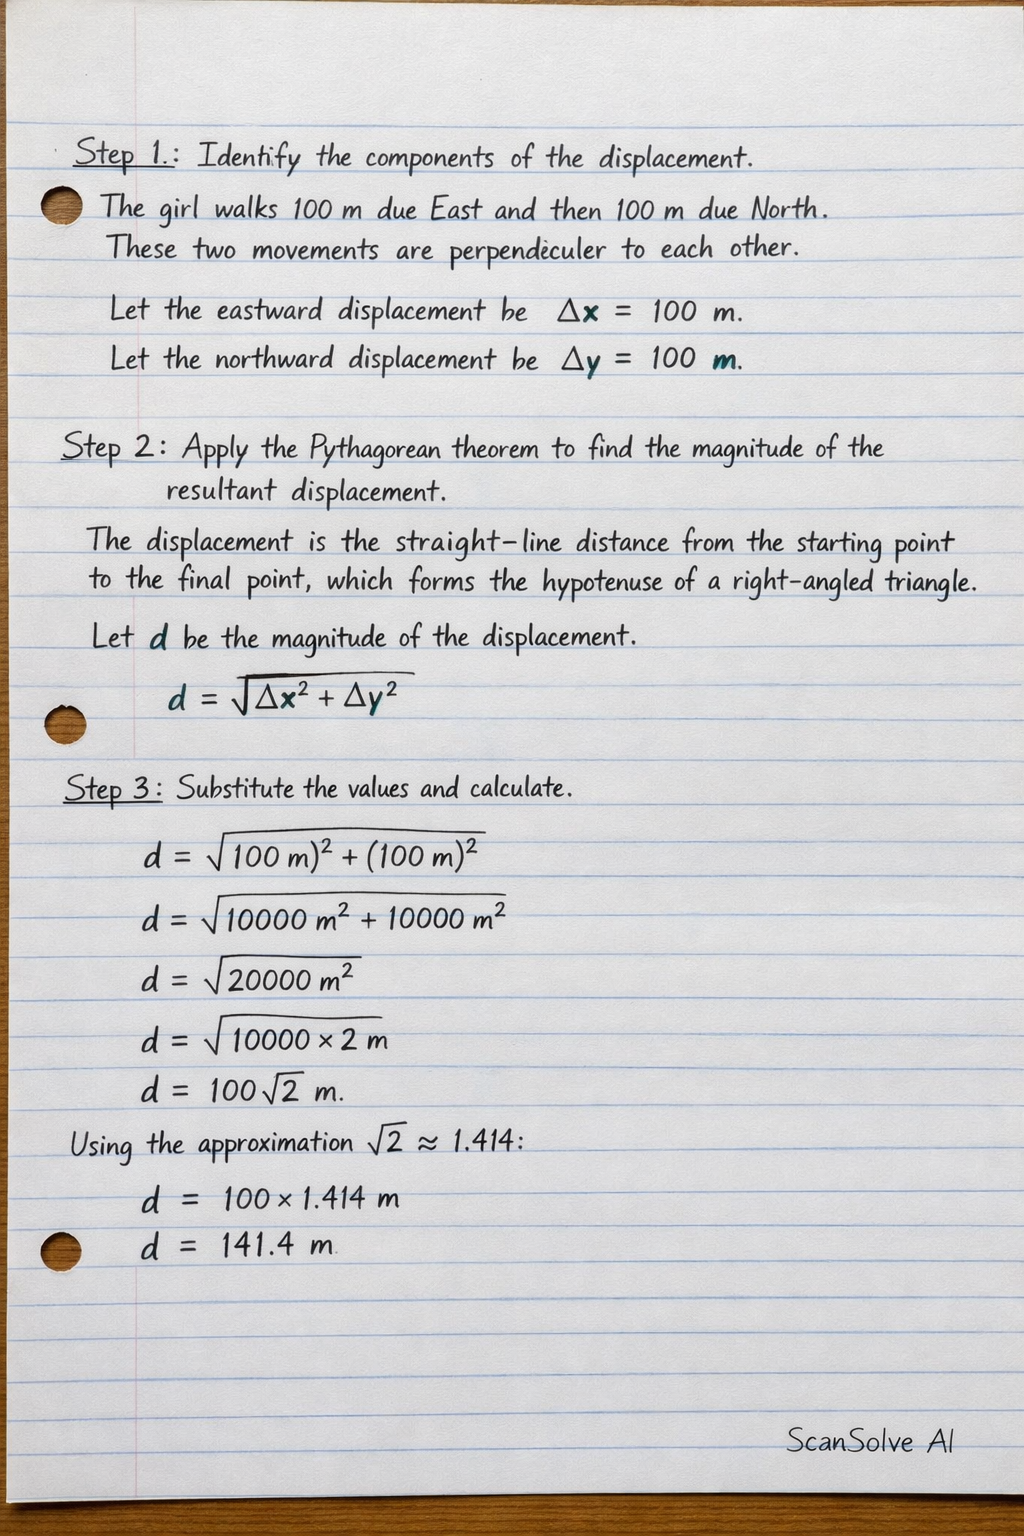 Step 1.: Identify the components of the displacement.
The girl walks 100 m due East and then 100 m due North.
These two movements are perpendiculer to each other.
Let the eastward displacement be Δx = 100 m.
Let the northward displacement be Δy = 100 m.
Step 2: Apply the Pythagorean theorem to find the magnitude of the
resultant displacement.
The displacement is the straight-line distance from the starting point
to the final point, which forms the hypotenuse of a right-angled triangle.
Let d be the magnitude of the displacement.
d = √Δx² + Δy²
Step 3: Substitute the values and calculate.
d = √100 m)² + (100 m)²
d = √10000 m² + 10000 m²
d = √20000 m²
d = √10000 × 2 m
d = 100√2 m.
Using the approximation √2 ≈ 1.414:
d = 100 × 1.414 m
d = 141.4 m.
ScanSolve AI